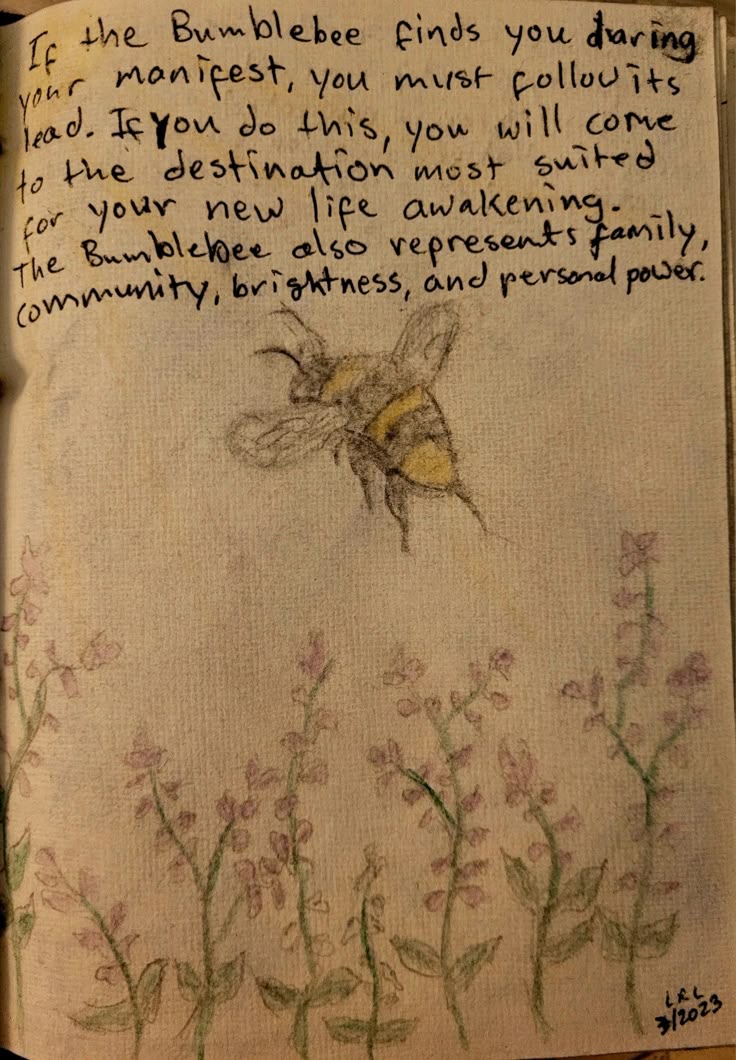 If the Bumblebee finds you during
your manifest, you must follow its
lead. If you do this, you will come
to the destination most suited
for your new life awakening.
The Bumblebee also represents family,
community, brightness, and personal power.
LRL
3/2023